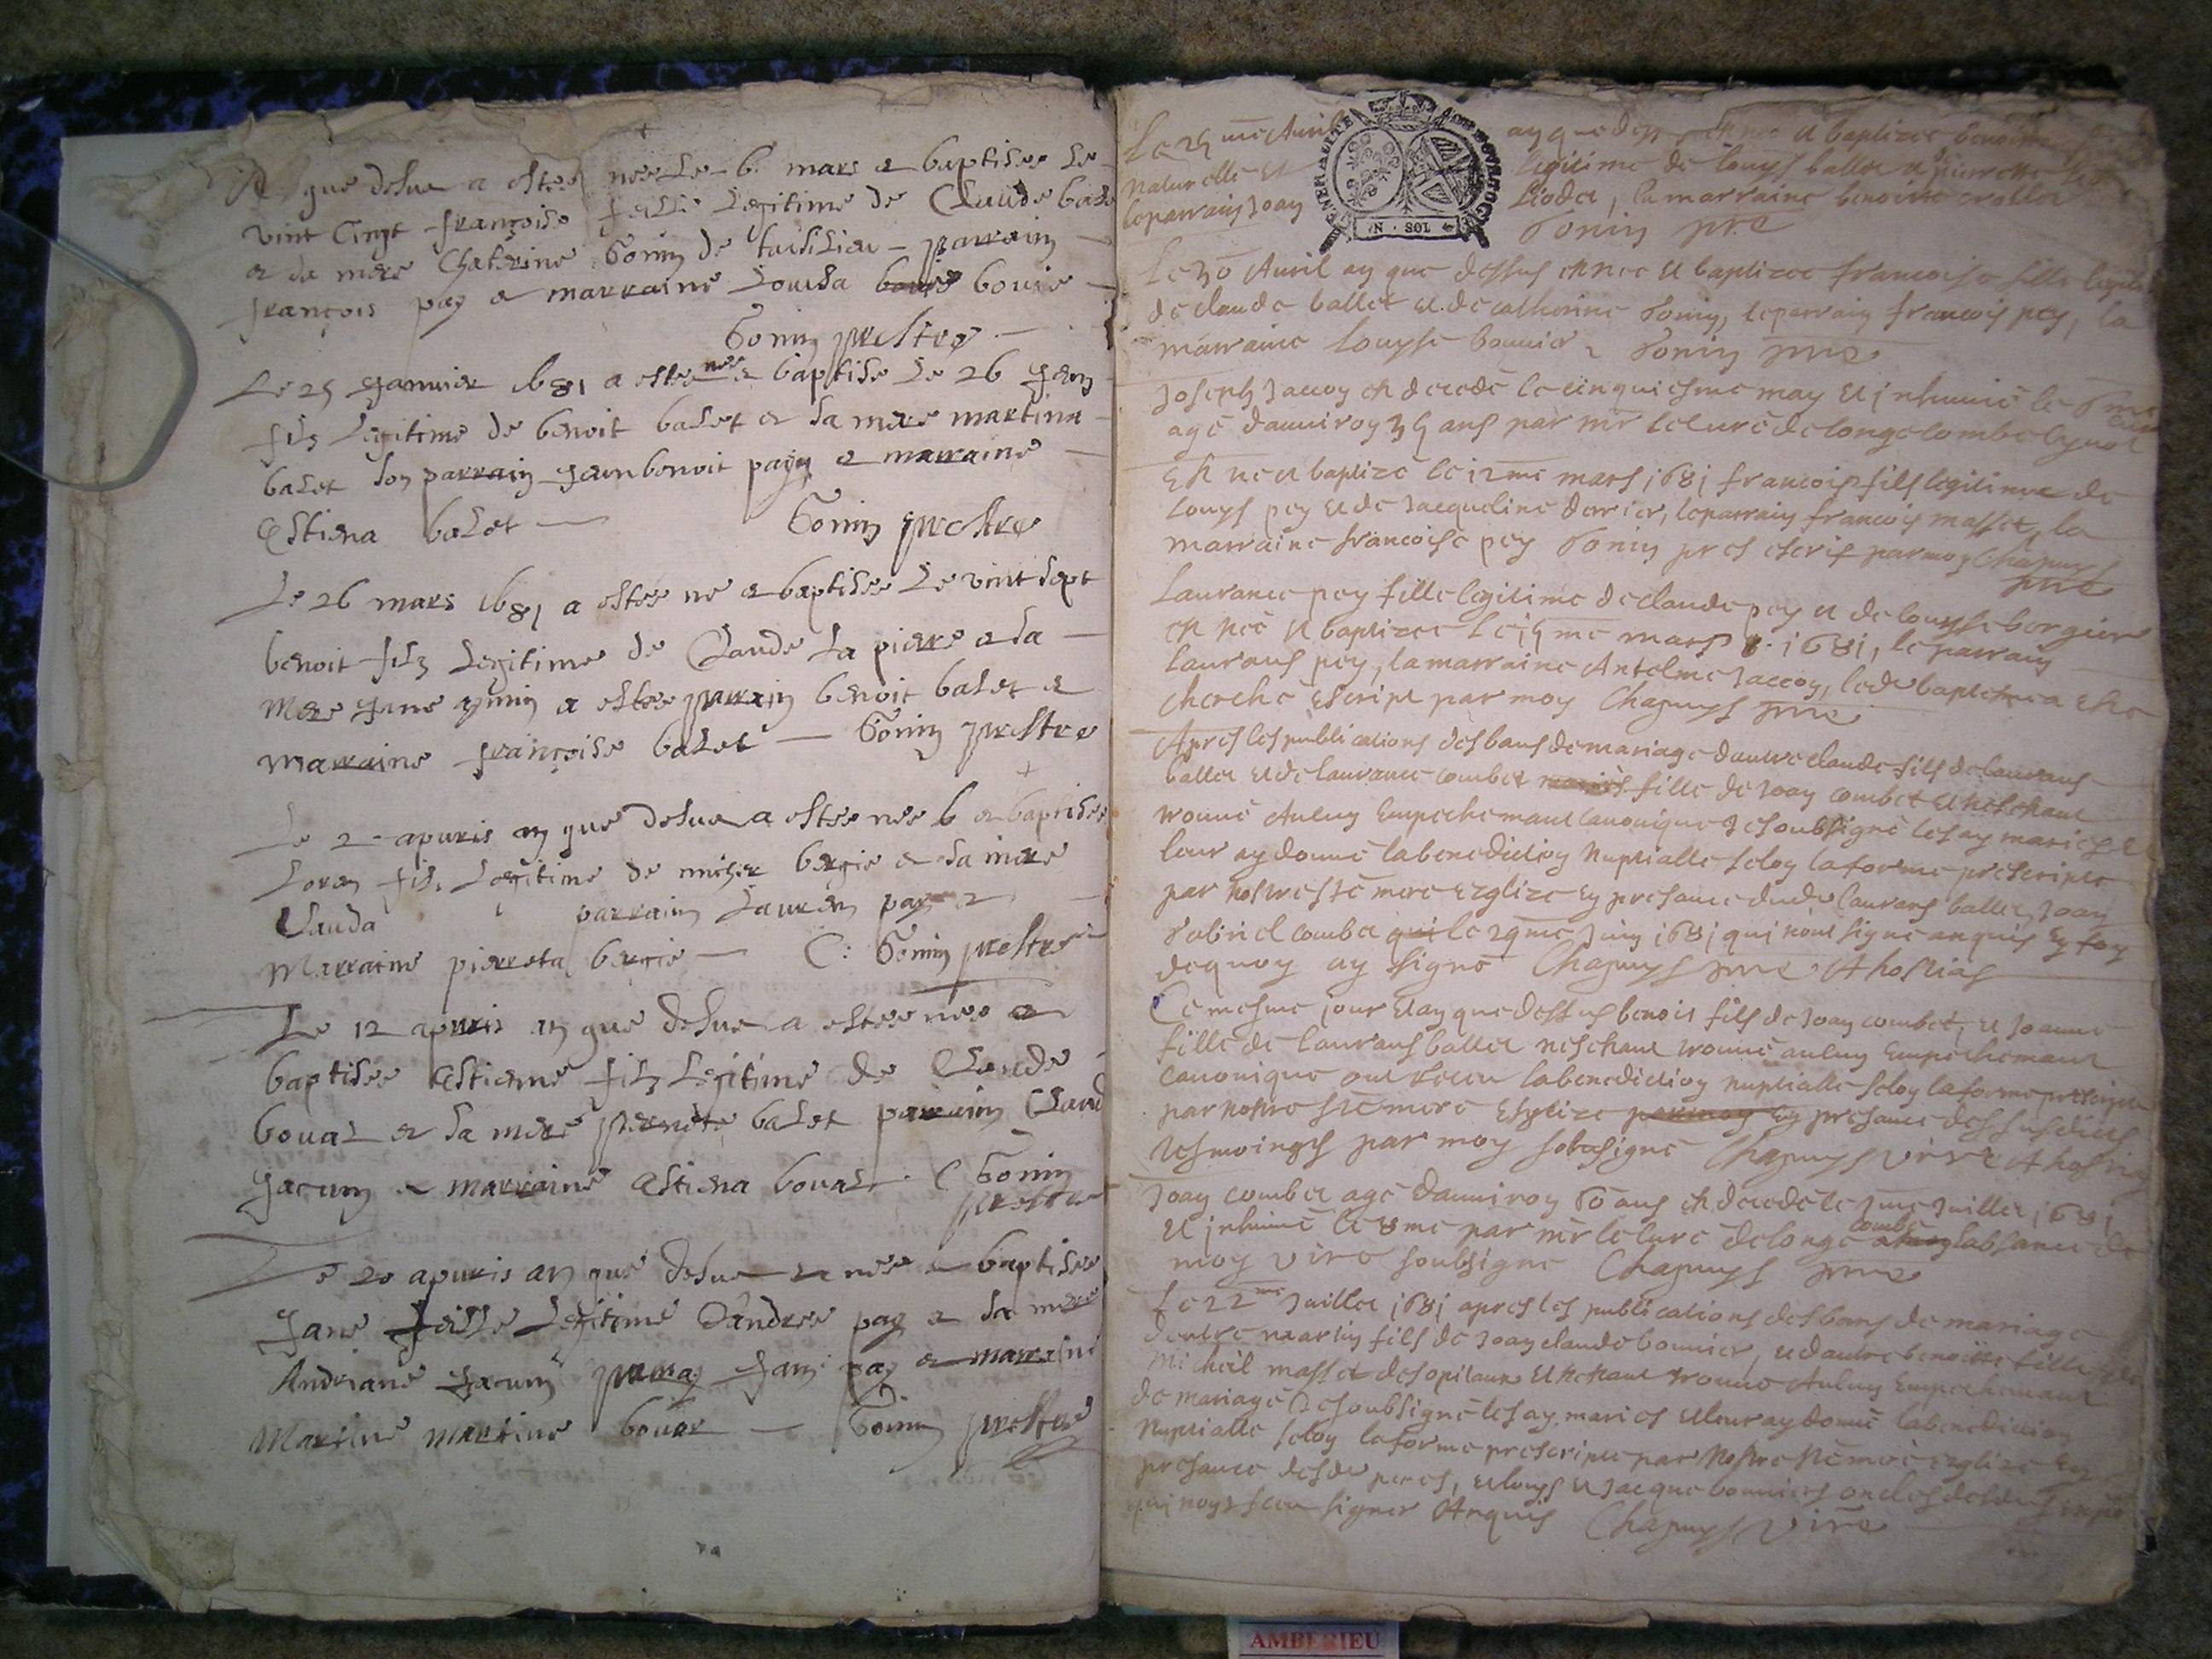 que desue a estee nee Le 6 mars et baptisee Le
vint Cinqt françoise feille Legitime de Claude balet
et sa mere Chaterine Gonin de parrain
françois pay et marraine Louisa bouie
Gonin prestre
Le 25 Janvier 1681 a estee nee et baptise Le 26 Jean
filz Legitime de benoit balet et sa mere martina
balet son parrain Jean benoit payy et marraine
Estiena balet Gonin prestre
Le 26 mars 1681 a estee ne et baptisee Le vint sept
benoit filz Legitime de Claude La piere et sa
mere Jane a estee parrain benoit balet et
marraine françoise balet Gonin prestre
Le 2 apuris an que desue a estee nee 6 et baptisee
Loren fils Legitime de bergie et sa mere
Clauda parrain Lauren pay et
Marraine pierreta bergie C: Gonin prestre
Le 12 apuris an que desue a estee nee et
baptisee Estiene filz Legitime de Claude
bouar et sa mere pernete balet parrain Claud
Jacum et marraine Estiena bouar C Gonin
prestre
Le 20 apuris an que desue nee et baptisee
Jane feille Legitime d'Andree pay et sa mere
Andriane Jacum Jan pay et
Martine martine bouar Gonin prestre
Le 25 me Avril ay que dess est nee et baptizee
Naturelle et legitime de louys ballet et pierrette
le parrain Joan la marraine benoiste
GENERALITE DE BOVRGOG
N · SOL
Gonin pre
Le 30 Avril ay que dessus est nee et baptizee francoise fille legit
de claude ballet et de catherine Gonin, le parrain francois pey, la
marraine louyse bounier Gonin pre
Joseph Jaccoy est decede le cinquiesme may et inhumé le 6 me
agé danviroy 35 ans par mr le curé de longecombe
Est né et baptizé le 12me mars 1681 francois fils legitime de
louys pey et de Jacqueline derrier, le parrain francois masset, la
marraine francoise pey Gonin pres escrit par moy Chapuys
pre
Laurance pey fille legitime de claude pey et de louyse bergier
est neè et baptizee le 15me mars 1681, le parrain
laurans pey, la marraine Antelme Jaccoy, led baptesme a esté
cherché escript par moy Chapuys pre
Apres les publications des bans de mariage dautre claude fils de laurans
ballet et de laurance combet fille de Joay combet et nestant
trouvé Aulcuy Empechemant canonique Je soubsigné les ay mariés et
leur ay donné la benediction Nuptialle seloy la forme prescripte
par nostre ste mere Ezglize Ey presance dud laurans ballet, Joay
Gabriel combet le 29me Juin 1681 qui nont signe anquis Ey foy
dequoy ay signe Chapuys pre A hostias
Ce mesme jour et ay que dessus benoit fils de Joay combet, et Joanne
fille de laurans ballet nestant trouvé aulcuy Empechemant
canonique ont receu la benediction nuptialle seloy la forme prescripte
par nostre ste mere Esglize Ey presance des susdicts
tesmoings par moy sobsigne Chapuys vire A hostias
Joay combet agé danviroy 60 ans est decede le 7me Juillet 1681
et inhumé le 8me par mr le curé de longe combe labsance de
moy vire soubsigne Chapuys pre
Le 22me Juillet 1681 apres les publications des bans de mariage
dentre martin fils de Joay claude bounier, et dautre benoiste fille
Michel masset et nestant trouvé Aulcuy Empechemant
de mariage Je soubsigné les ay mariés et leur ay donné la benediction
Nuptialle seloy la forme prescripte par Nostre Ste mere ezglize Ey
presance desd peres, et louys et Jacque bouniers oncles
qui noys sceu signer Anquis Chapuys vire
AMBERIEU